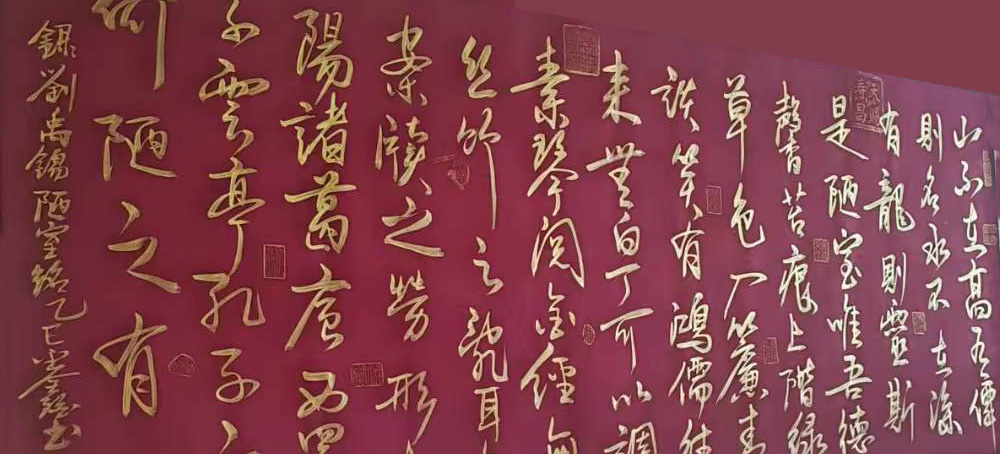 山不在高有僊
則名水不在深
有龍則靈斯
是陋室唯吾德
馨苔痕上階綠
草色入簾青
談笑有鴻儒往
來無白丁可以調
素琴閱金經無
絲竹之亂耳
案牘之勞形
陽諸葛廬西蜀
子雲亭孔子
何陋之有
錄劉禹錫陋室銘乙巳書